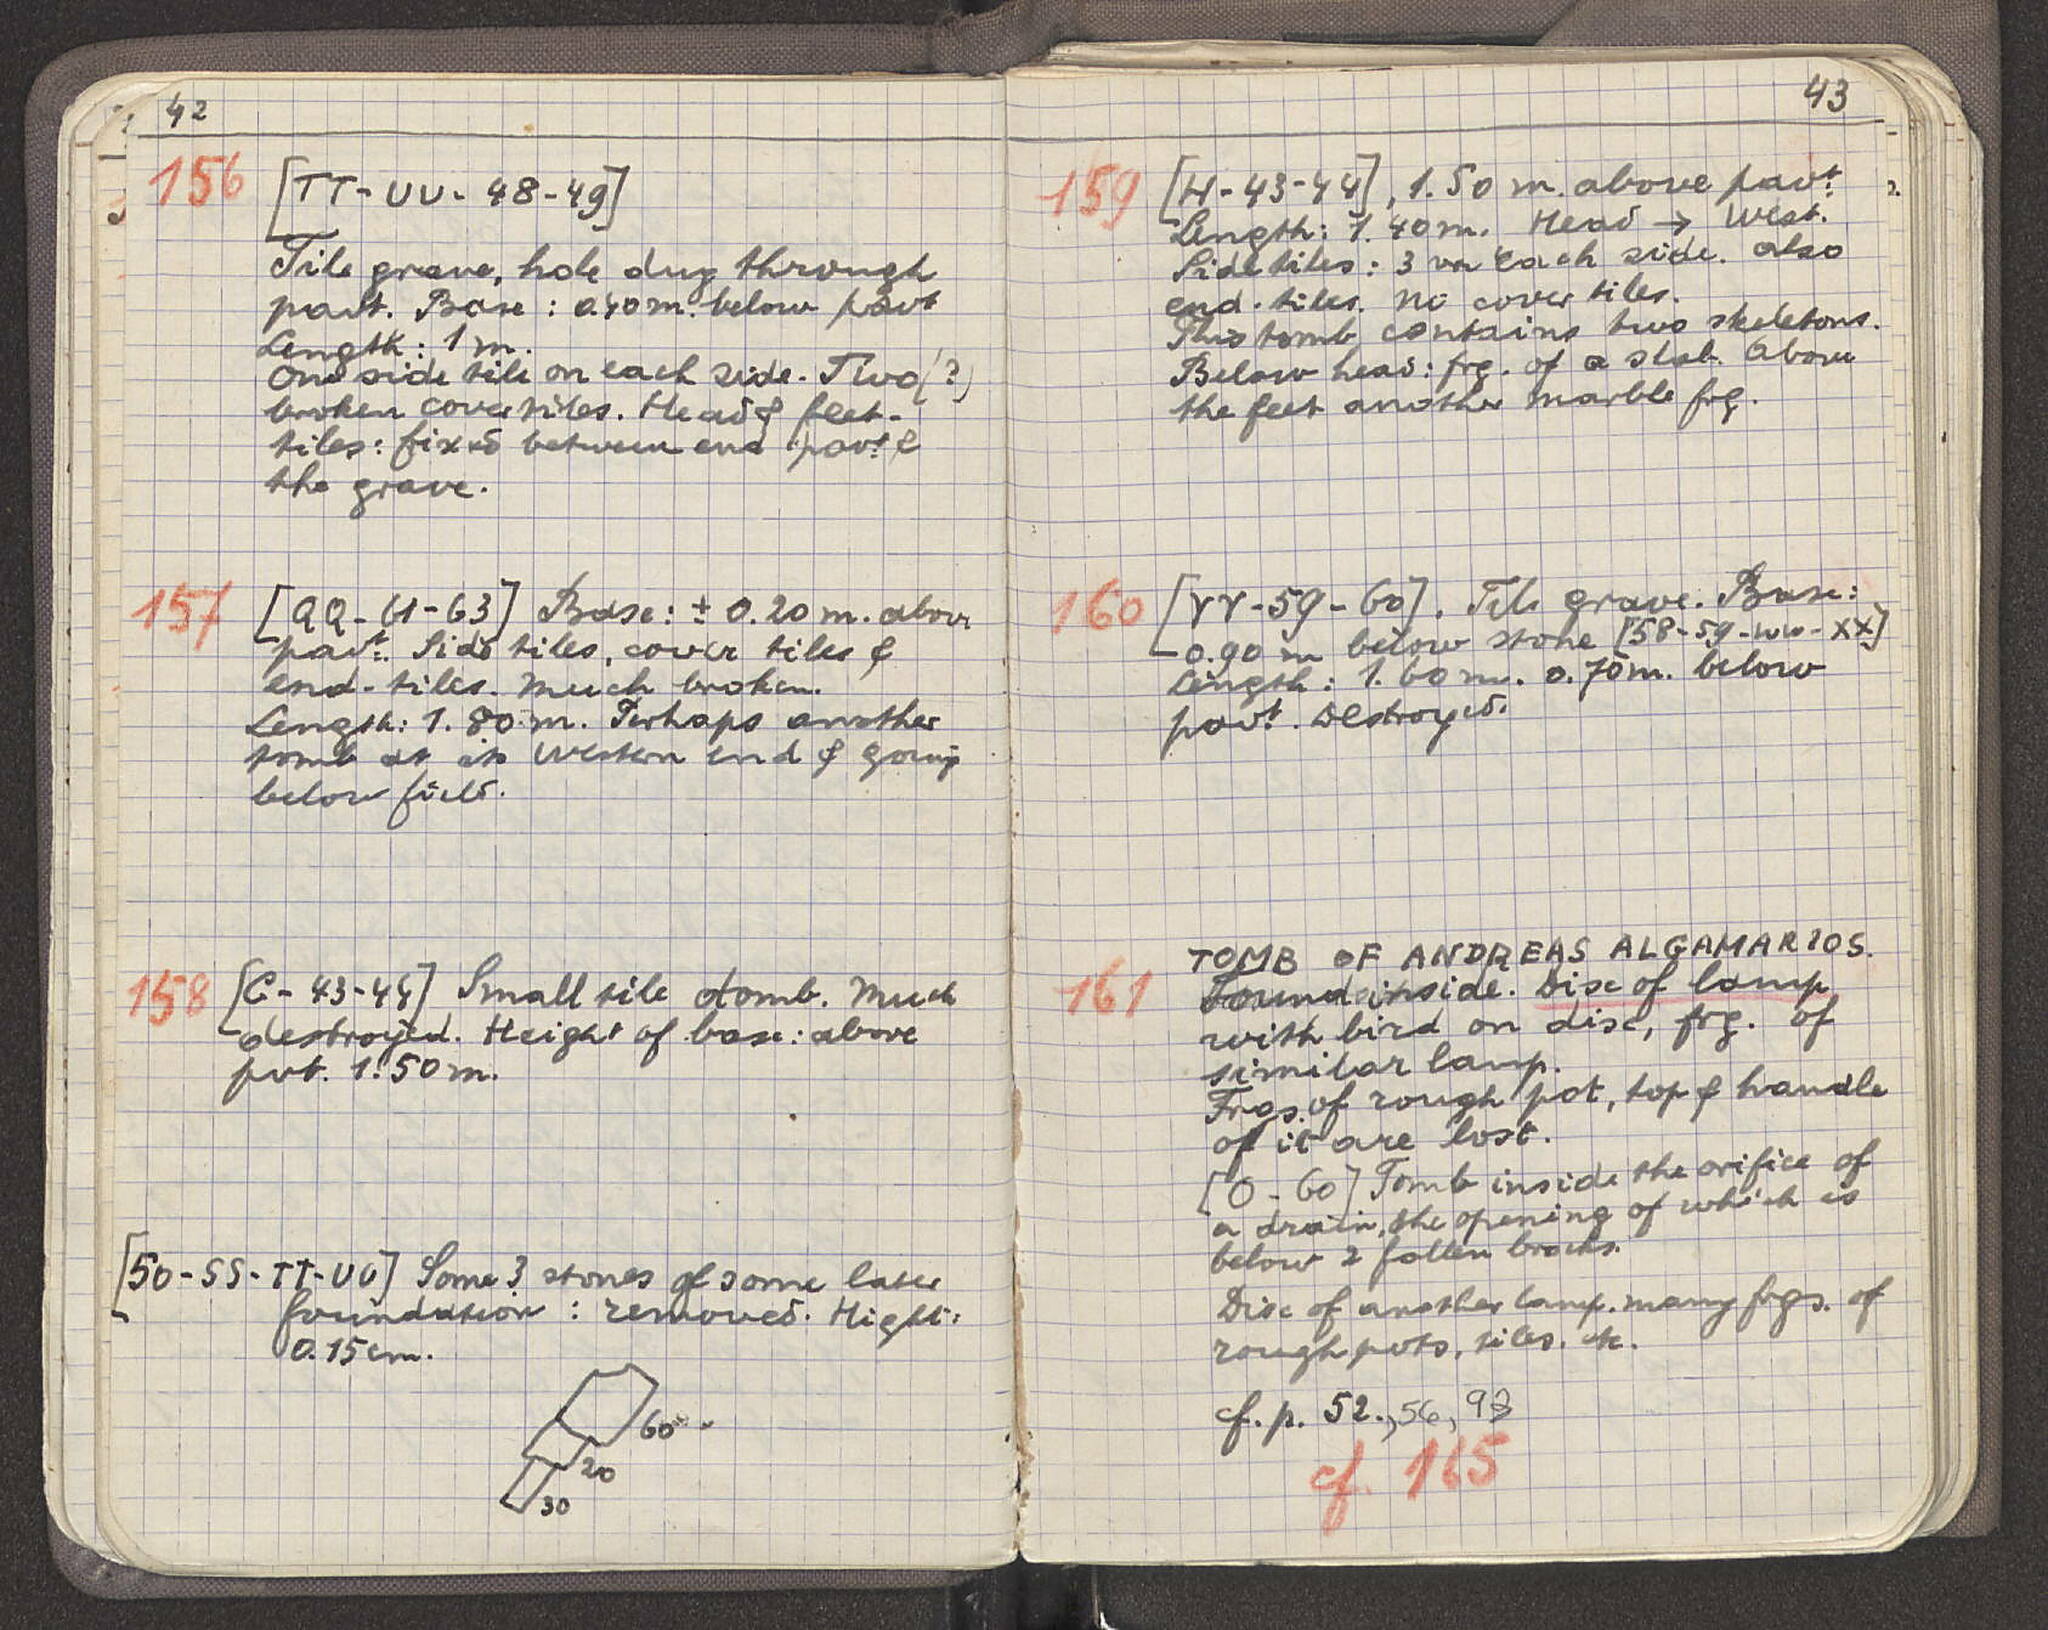 42
156 [TT-UU-48-49]
Tile grave, hole dug through
pavt. Base: 0.40 m. below pavt
Length: 1 m.
One side tile on each side. Two (?)
broken cover tiles. Head & feet-
tiles: fixed between end pavt &
the grave.
157 [QQ-61-63] Base: ± 0.20 m. above
pavt. Side tiles, cover tiles &
end-tiles. Much broken.
Length: 1.80 m. Perhaps another
tomb at its western end & going
below field.
158 [C-43-44] Small tile tomb. Much
destroyed. Height of base: above
pvt. 1.50 m.
[50-SS-TT-UU] Some 3 stones of some later
foundation: removed. Hight:
0.15 cm.
60
20
30
43
159 [H-43-44], 1.50 m. above pavt.
Length: 1.40 m. Head → West.
Side tiles: 3 on each side. also
end-tiles. No cover tiles.
This tomb contains two skeletons.
Below head: frg. of a slab. Above
the feet another marble frg.
160 [YY-59-60]. Tile grave. Base:
0.90 m below stone [58-59-WW-XX]
Length: 1.60 m. 0.70 m. below
pavt. Destroyed.
TOMB OF ANDREAS ALGAMARIOS.
161 Found inside. Disc of lamp
with bird on disc, frg. of
similar lamp.
Frgs. of rough pot, top & handle
of it are lost.
[O-60] Tomb inside the orifice of
a drain, the opening of which is
below 2 fallen blocks.
Disc of another lamp. many frgs. of
rough pots, tiles. etc.
cf. p. 52., 56, 93
cf. 165